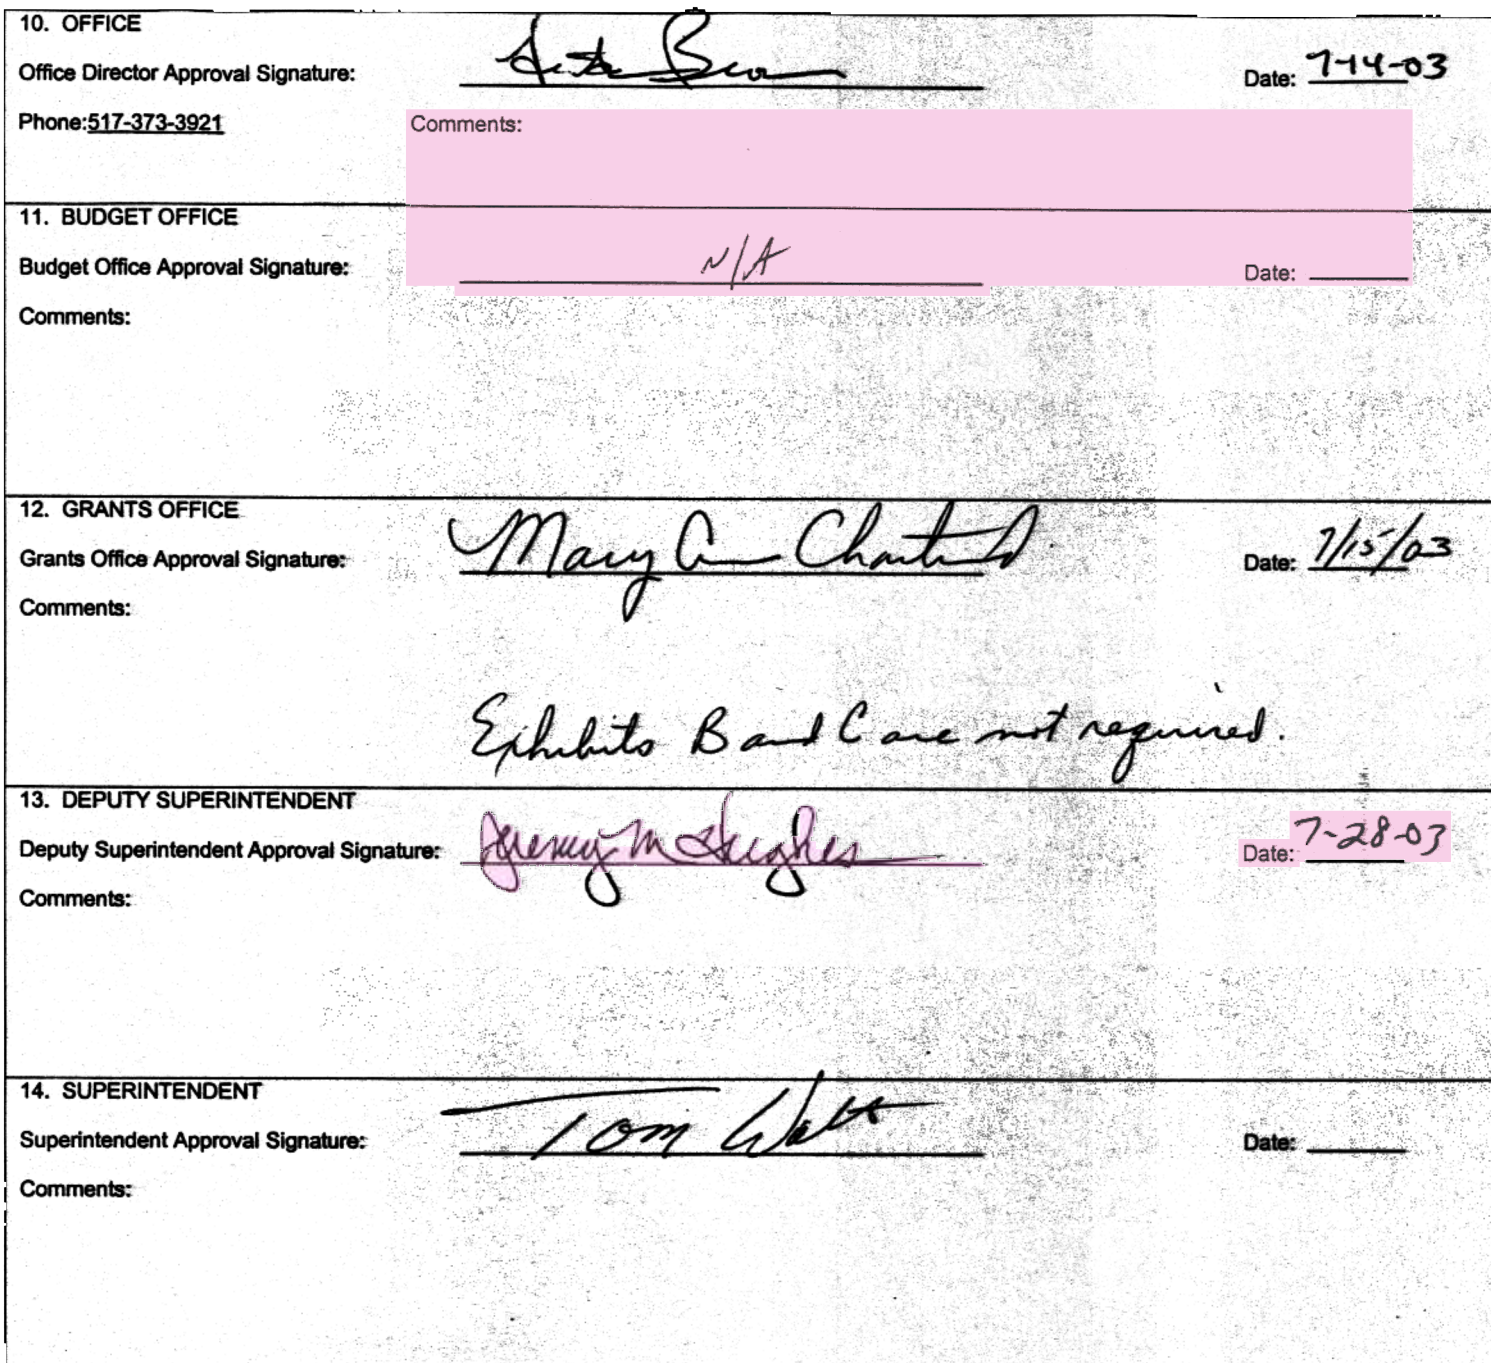 10. OFFICE
Office Director Approval Signature: Date: 7-14-03
Phone:517-373-3921 Comments:
11. BUDGET OFFICE
Budget Office Approval Signature: N/A Date:
Comments:
12. GRANTS OFFICE
Grants Office Approval Signature: Mary Ann Chartrand Date: 7/15/03
Comments:
Exhibits B and C are not required.
13. DEPUTY SUPERINTENDENT
Deputy Superintendent Approval Signature: Jeremy M Hughes Date: 7-28-03
Comments:
14. SUPERINTENDENT
Superintendent Approval Signature: Tom Watt Date:
Comments: